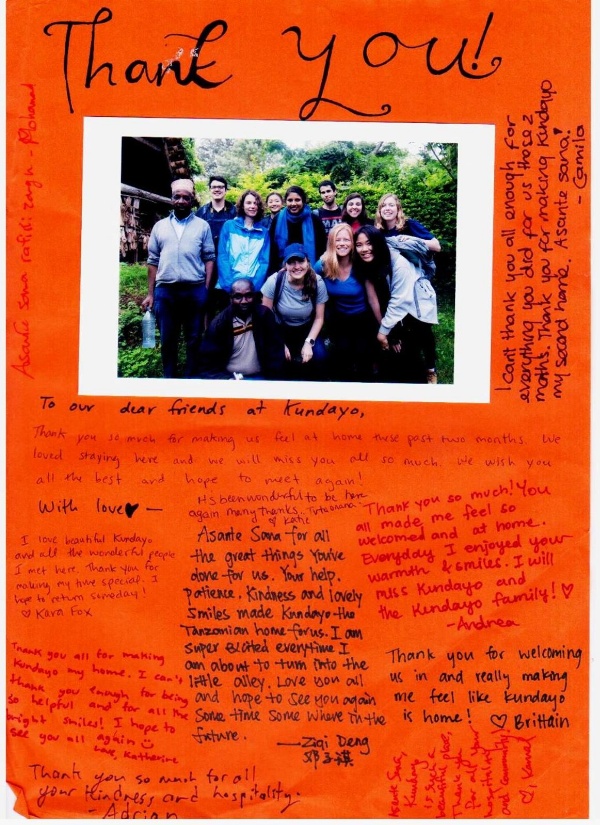 Thank You!
Asante sana rafiki zangu - Mohamad
I can't thank you all enough for
everything you did for us those 2
moths. Thank you for making Kundayo
my second home. Asante sana.♥
- Camila
To our dear friends at Kundayo,
Thank you so much for making us feel at home these past two months. We
loved staying here and we will miss you all so much. We wish you
all the best and hope to meet again!
With love♥ —
It's been wonderful to be here
again many thanks. Tutaonana.
♡ Katie
I love beautiful Kundayo
and all the wonderful people
I met here. Thank you for
making my time special. I
hope to return someday!
♡ Kara Fox
Asante Sana for all
the great things You've
done for us. Your help,
patience, kindness and lovely
smiles made Kundayo the
Tanzanian home for us. I am
super excited everytime I
am about to turn into the
little alley. Love you all
and hope to see you again
some time some where in the
future.
—Ziqi Deng
Thank you so much! You
all made me feel so
welcomed and at home.
Everyday I enjoyed your
warmth & smiles. I will
miss Kundayo and
the Kundayo family! ♡
-Andrea
Thank you all for making
Kundayo my home. I can't
thank you enough for being
so helpful and for all the
bright smiles! I hope to
see you all again ☺
Love, Katherine
Thank you for welcoming
us in and really making
me feel like Kundayo
is home! ♡ Brittain
Asante Sana,
Kundayo
is such a
beautiful place,
Thank you
for all your
hospitality
and community!
♡,
Thank you so much for all
your kindness and hospitality.
- Adrian